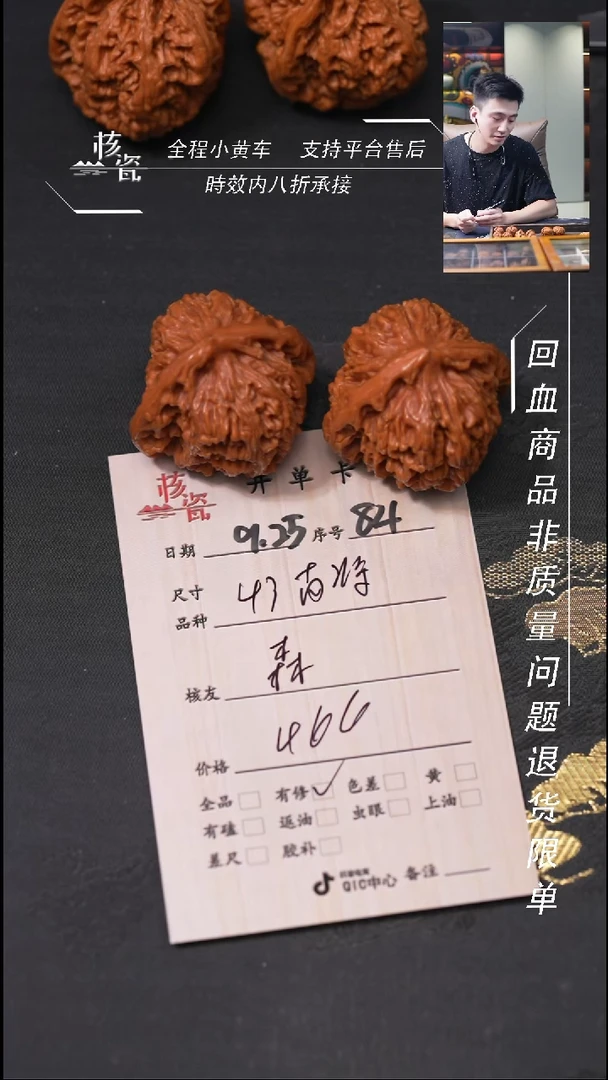 核瓷
全程小黄车 支持平台售后
時效内八折承接
回血商品非质量问题退货限单
核瓷 开单卡
日期 9.25 序号 84
尺寸
品种 47南将
核友 森
价格 466
全品 有修 ✓ 色差 黄
有磕 返油 虫眼 上油
差尺 胶补
QIC中心 备注